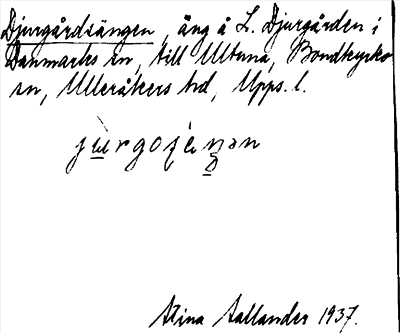 Djurgårdsängen, äng å L. Djurgården i
Danmarks sn, till Ultuna, Bondkyrko
sn, Ulleråkers hd, Upps. l.
Stina Sallander 1937.